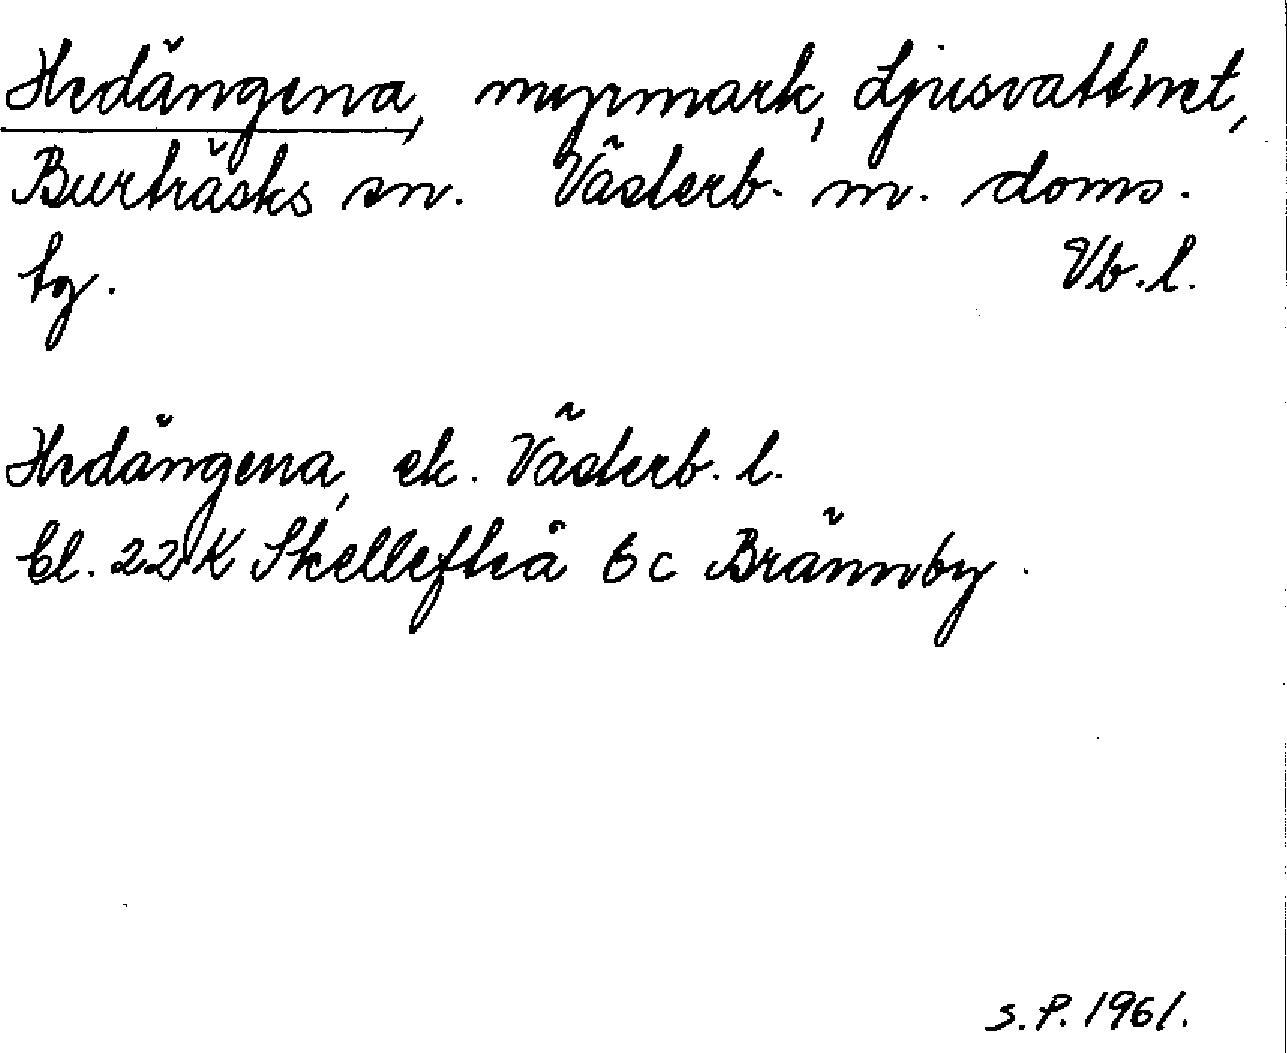 Hedängena, myrmark, Ljusvattnet,
Burträsks sn. Västerb. n. doms.
tg. Vb. l.
Hedängena, ek. Västerb. l.
bl. 22 K Skellefteå 6 c Brännby.
S. P. 1961.